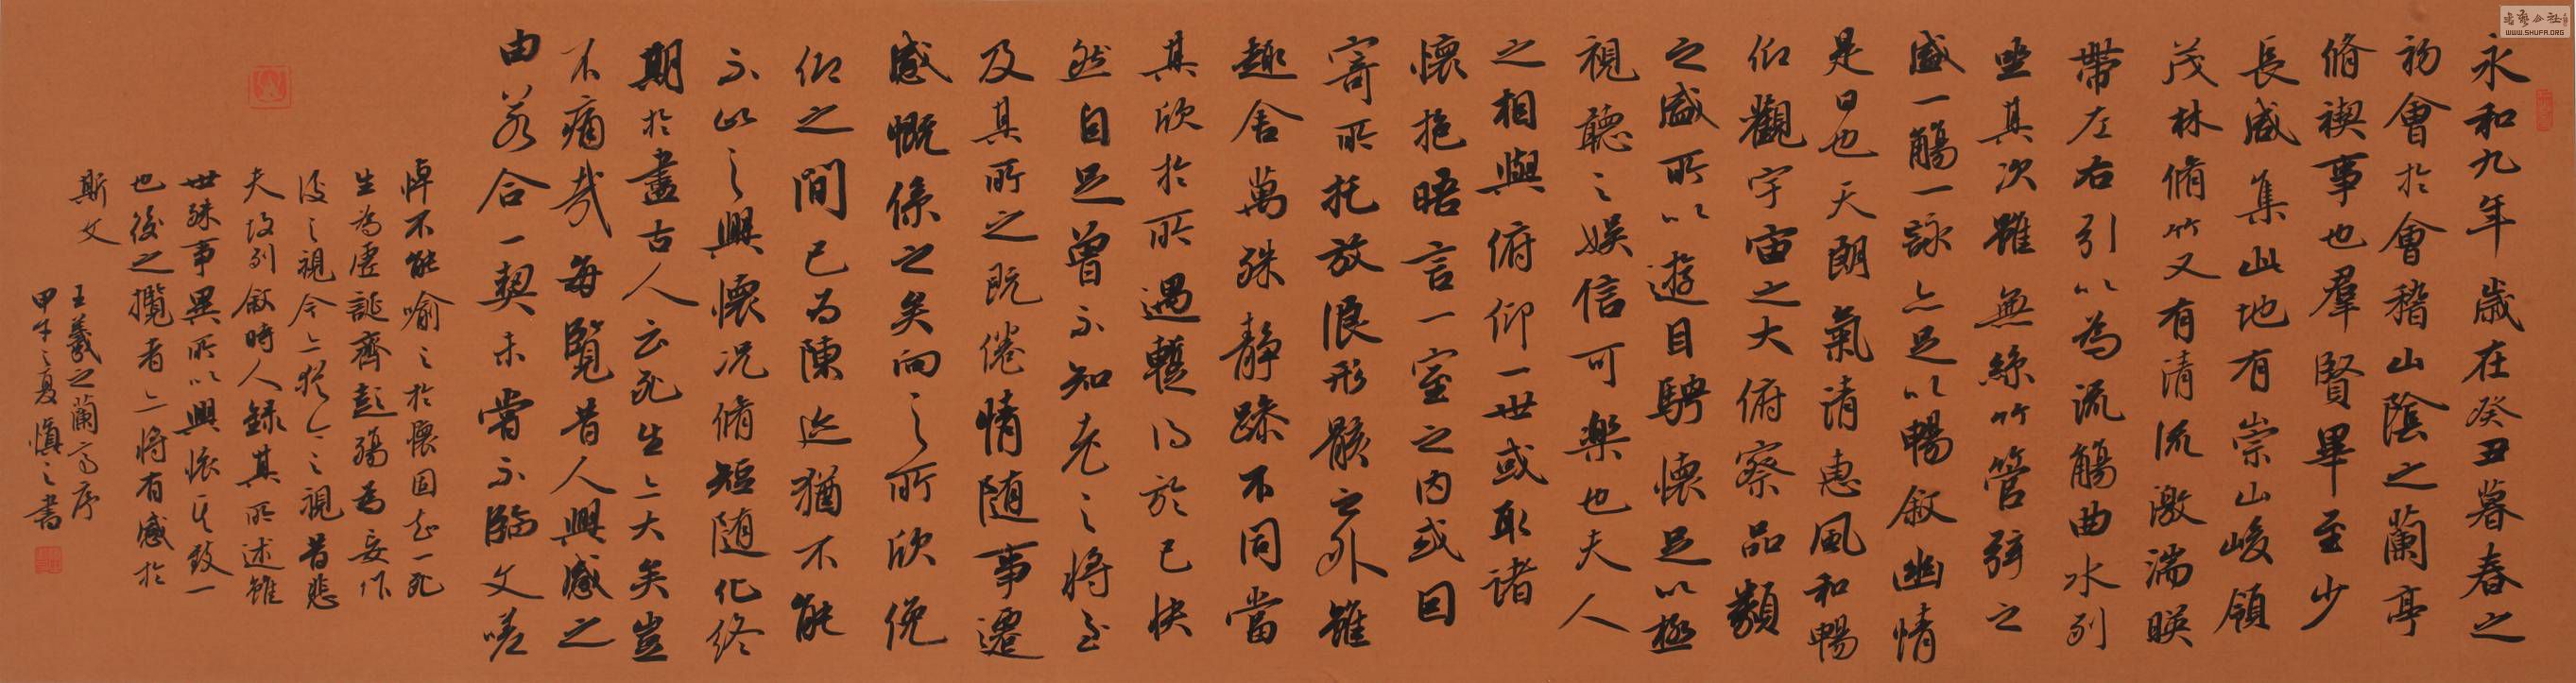 永和九年歲在癸丑暮春之
初會於會稽山陰之蘭亭
脩禊事也羣賢畢至少
長咸集此地有崇山峻領
茂林脩竹又有清流激湍暎
帶左右引以為流觴曲水列
坐其次雖無絲竹管弦之
盛一觴一詠亦足以暢敘幽情
是日也天朗氣清惠風和暢
仰觀宇宙之大俯察品類
之盛所以遊目騁懷足以極
視聽之娛信可樂也夫人
之相與俯仰一世或取諸
懷抱晤言一室之內或因
寄所托放浪形骸之外雖
趣舍萬殊靜躁不同當
其欣於所遇蹔得於己快
然自足曾不知老之將至
及其所之既倦情隨事遷
感慨係之矣向之所欣俛
仰之間已為陳迹猶不能
不以之興懷況脩短隨化終
期於盡古人云死生亦大矣豈
不痛哉每覽昔人興感之
由若合一契未嘗不臨文嗟
悼不能喻之於懷固知一死
生為虛誕齊彭殤為妄作
後之視今亦猶今之視昔悲
夫故列敘時人錄其所述雖
世殊事異所以興懷其致一
也後之攬者亦將有感於
斯文
王羲之蘭亭序
甲午之夏慎之書
WWW.SHUFA.ORG